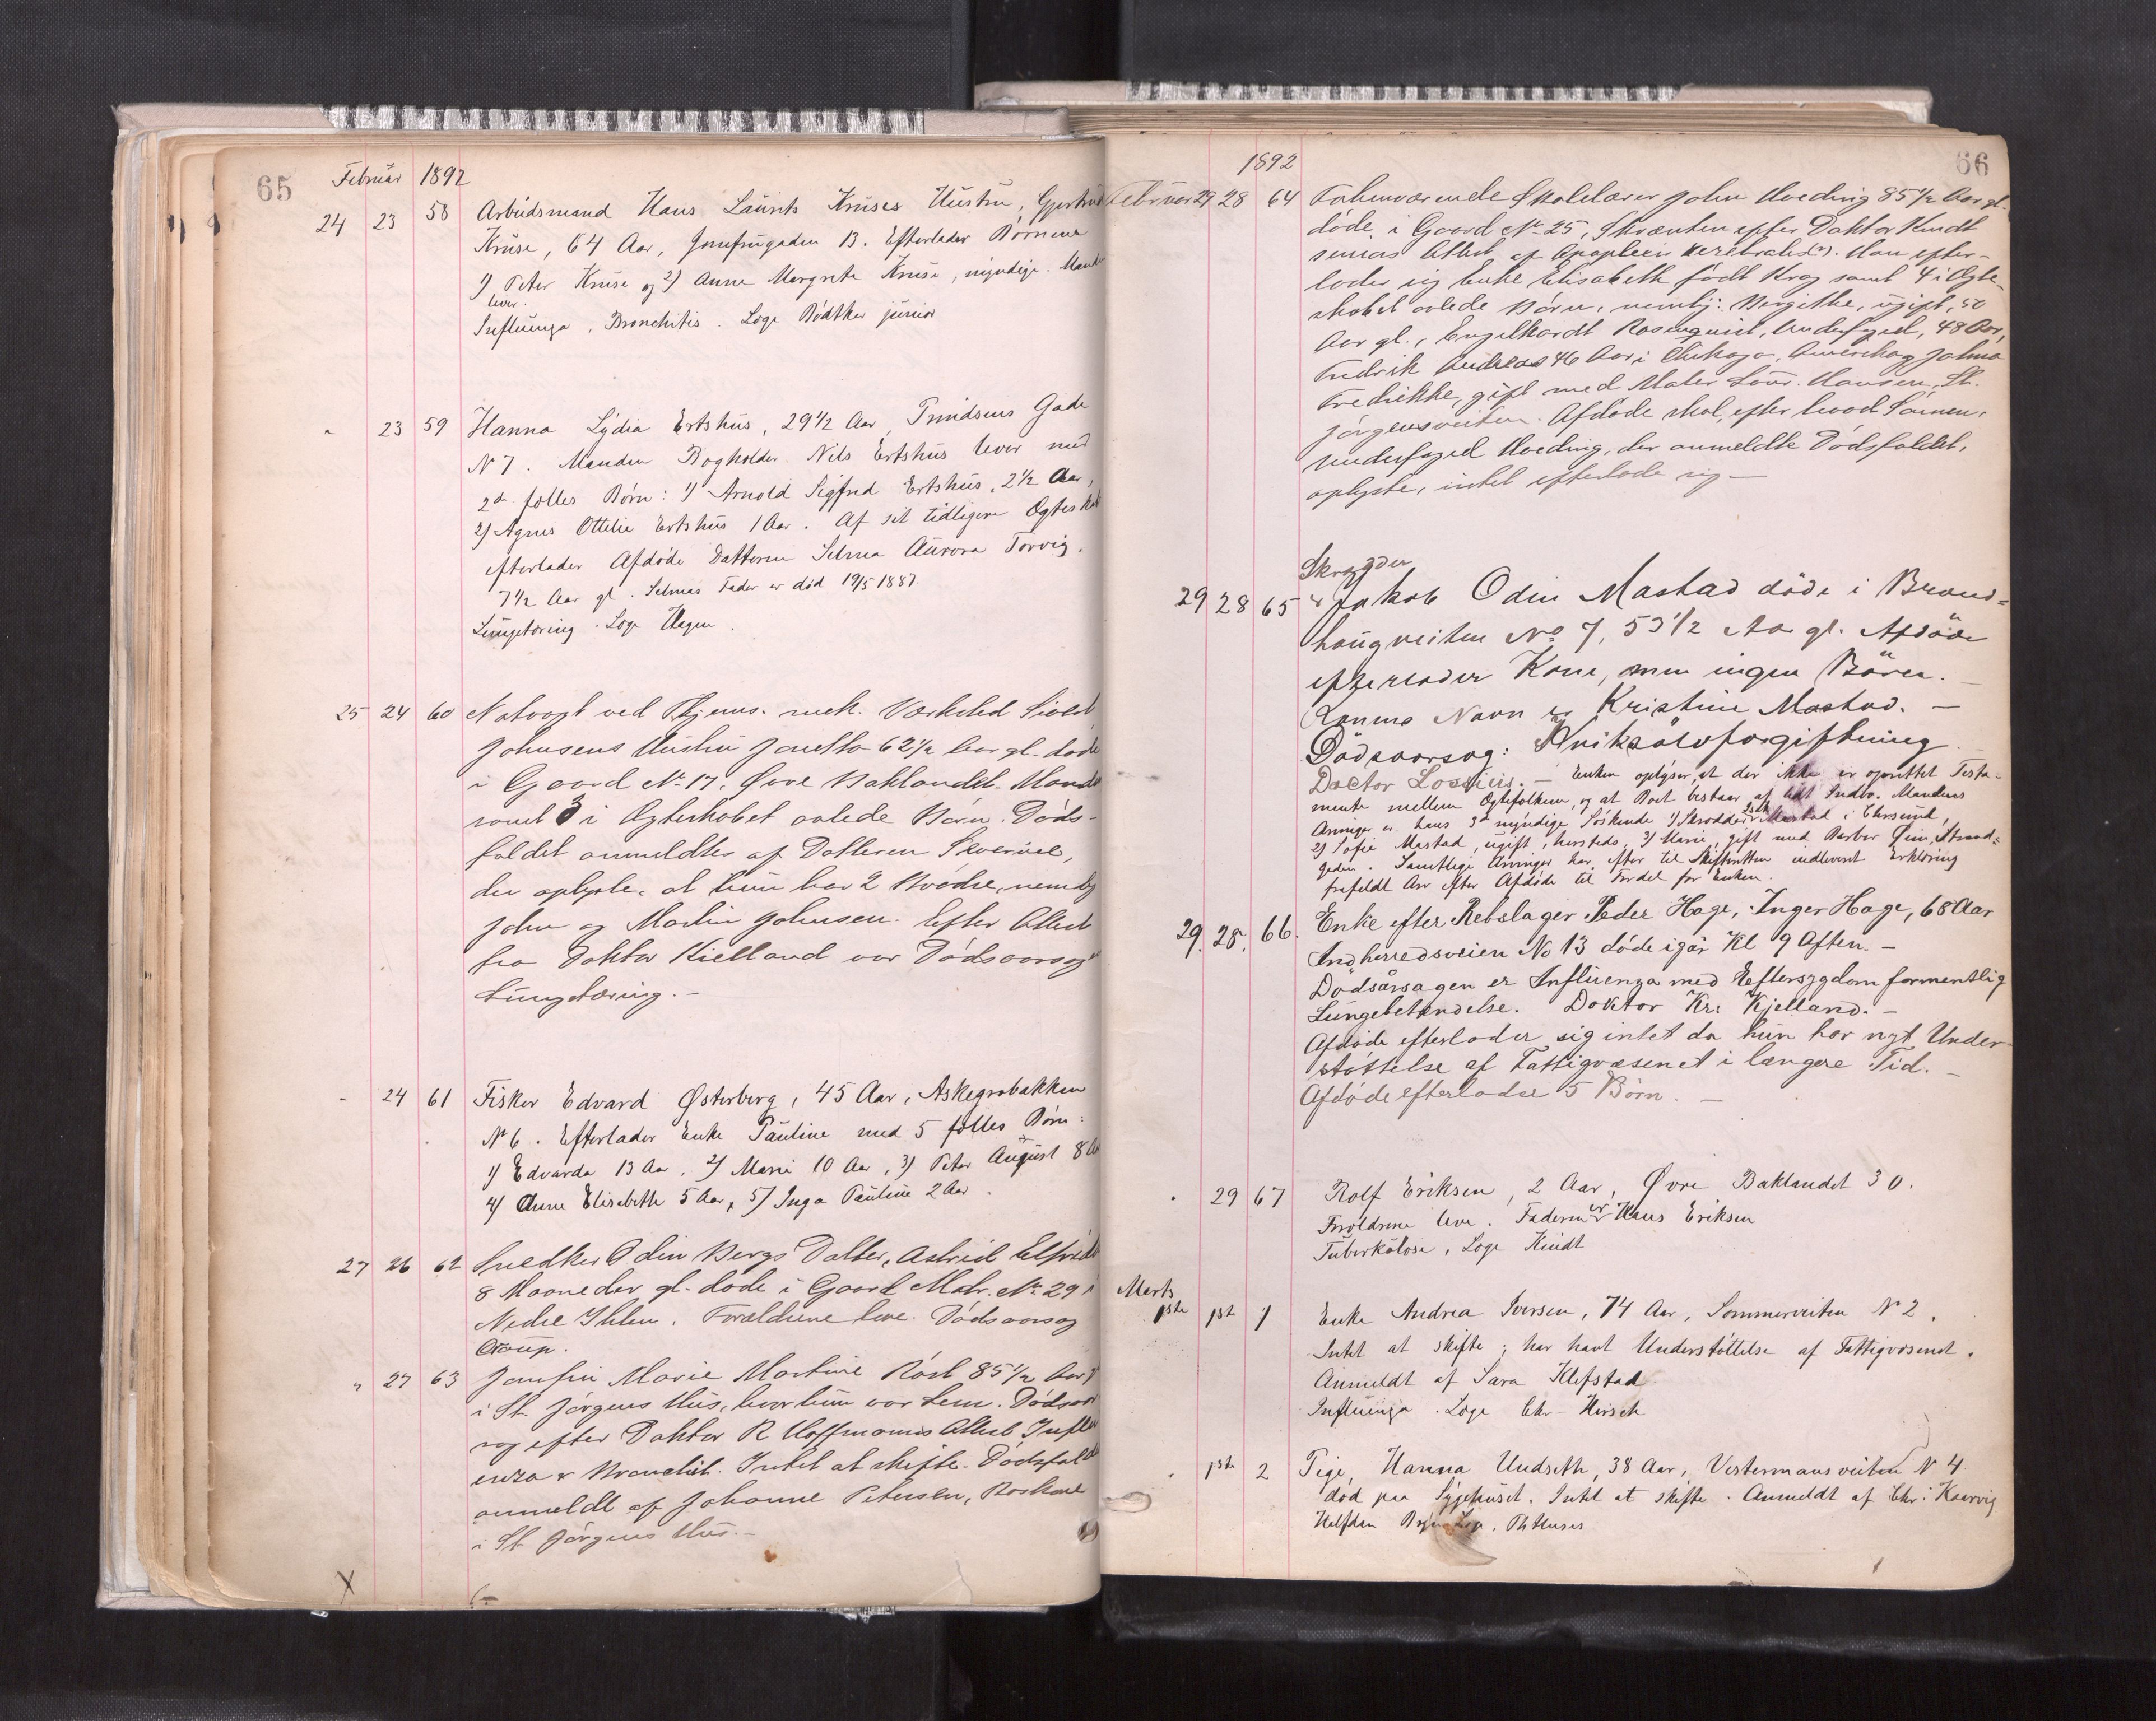 65 Februar 1892
24 23 58 Arbeidsmand Hans Laurits Kruses Hustru, Gjertrud
Kruse, 64 Aar, Jomfrugaden 13. Efterlader Børnene
1) Peter Kruse og 2) Anne Margrete Kruse, myndige. Manden
lever.
Influenza, Bronchitis. Læge Bødtker junior
" 23 59 Hanna Lydia Ertshus, 29 1/2 Aar, Gade
N 7. Manden Bogholder Nils Ertshus lever med
2 fælles Børn: 1) Arnold Sigfred Ertshus, 2 1/2 Aar,
2) Agnes Ottilie Ertshus 1 Aar. Af sit tidligere Ægteskab
efterlader Afdøde Datteren Selma Aurora Torvig,
7 1/2 Aar gl. Selmas Fader er død 19/5 1887.
Lungetæring. Læge Hagen.
25 24 60 Natvagt ved Thjems. mek. Værksted Sivert
Johnsens Hustru Jonetta 62 1/2 Aar gl. døde
i Gaard No 17, Øvre Baklandet. Manden
samt 3 i Ægteskabet avlede Børn. Døds-
faldet anmeldtes af Datteren
der oplyste, at hun har 2 Brødre, nemlig
John og Martin Johnsen. Efter Attest
fra Doktor Kielland var Dødsaarsag
Lungetæring. -
" 24 61 Fisker Edvard Østerberg, 45 Aar, Askegrobakken
No 6. Efterlader Enke Pauline med 5 fælles Børn:
1) Edvarda 13 Aar, 2) Marie 10 Aar, 3) Peter August 8 Aar
4) Anne Elisabeth 5 Aar, 5) Inga Pauline 2 Aar.
27 26 62 Snedker Odin Bergs Datter, Astrid Elfride
8 Maaneder gl. døde i Gaard Matr. No 29 i
Nedre Ihlen. Forældrene leve. Dødsaarsag
Croup.
" 27 63 Jomfru Marie Martine Røst 85 1/2 Aar gl
i St. Jørgens Hus, hvor hun var Lem. Dødsaar
sag efter Doktor R Hoffmanns Attest Influ
enza & Bronchit. Intet at skifte. Dødsfaldet
anmeldt af Johanne Petersen,
i St Jørgens Hus. -
X
1892 66
Februar 29 28 64 Forhenværende Skolelærer John Hveding 85 1/2 Aar gl.
døde i Gaard No 25, Skrænten efter Doktor Kindt
seniors Attest af Apoplexi cerebralis(?). Han efter-
lader sig Enke Elisabeth født Krog samt 4 i Ægte-
skabet avlede Børn, nemlig: Bergithe, ugift, 50
Aar gl., Engelhardt Rosenqvist, Underfoged, 48 Aar,
Fredrik Andreas 46 Aar i Chikago, Amerika og Johna
Fredrikke, gift med Maler Laur. Hansen, St.
Jørgensveiten. Afdøde skal, efter hvad Sønnen,
Underfoged Hveding, der anmeldte Dødsfaldet,
oplyste, intet efterlade sig -
29 28 65 Skrædder
Jakob Odin Mastad døde i Brand-
haugveiten No 7, 53 1/2 Aar gl. Afdøde
efterlader Kone, men ingen Børn. -
Konens Navn er Kristine Mastad. -
Dødsaarsag: Kviksølvforgiftning
Doctor Lossius. - Enken oplyser, at der ikke er oprettet Testa-
mente mellem Ægtefolkene, og at Boet bestaar af lidt Indbo. Mandens
Arvinger er hans 3 myndige Søskende 1) Skrædder Mastad i Ekersund,
2) Sofie Mastad, ugift, hersteds, 3) Marie, gift med Barber Øien, Strand-
gaden. Samtlige Arvinger har efter til Skifteretten indleveret Erklæring
frafaldt Arv efter Afdøde til Fordel for Enken.
29. 28. 66. Enke efter Rebslager Peder Hage, Inger Hage, 68 Aar
Indherredsveien No 13 døde igår Kl 9 Aften. -
Dødsårsagen er Influenza med Eftersygdom formentlig
Lungebetændelse. Doktor Kr. Kjelland. -
Afdøde efterlader sig intet da hun har nydt Under-
støttelse af Fattigvæsenet i længere Tid. -
Afdøde efterlader 5 Børn. -
" 29 67 Rolf Eriksen, 2 Aar, Øvre Baklandet 30.
Forældrene leve. Faderen er Hans Eriksen
Tuberkulose, Læge Kindt
Marts
1ste 1ste 1 Enke Andrea Iversen, 74 Aar, Sommerveiten No 2.
Intet at skifte; har havt Understøttelse af Fattigvæsenet.
Anmeldt af Sara Klefstad.
Influenza. Læge Chr. Hirsch
" 1ste 2 Pige, Hanna Undseth, 38 Aar, Vestermansveiten No 4
død paa Sygehuset. Intet at skifte. Anmeldt af Chr. Kaarvig
Halfdan